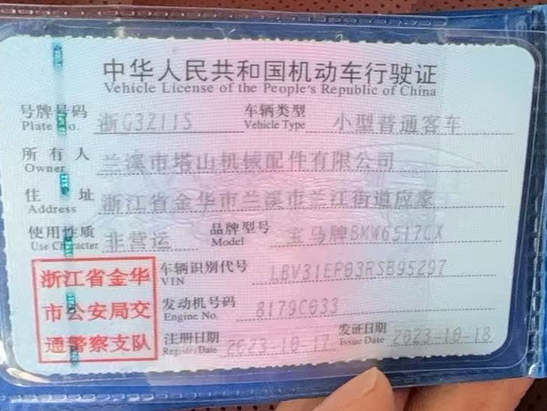 中华人民共和国机动车行驶证
Vehicle License of the People's Republic of China
号牌号码 Plate No. 浙G3Z11S 车辆类型 Vehicle Type 小型普通客车
所有人 Owner 兰溪市塔山机械配件有限公司
住址 Address 浙江省金华市兰溪市兰江街道应家
使用性质 Use Character 非营运 品牌型号 Model 宝马牌BMW6517CX
浙江省金华市公安局交通警察支队
车辆识别代号 VIN LBV31EP03RSB95297
发动机号码 Engine No. 8179C033
注册日期 Register Date 2023-10-17 发证日期 Issue Date 2023-10-18